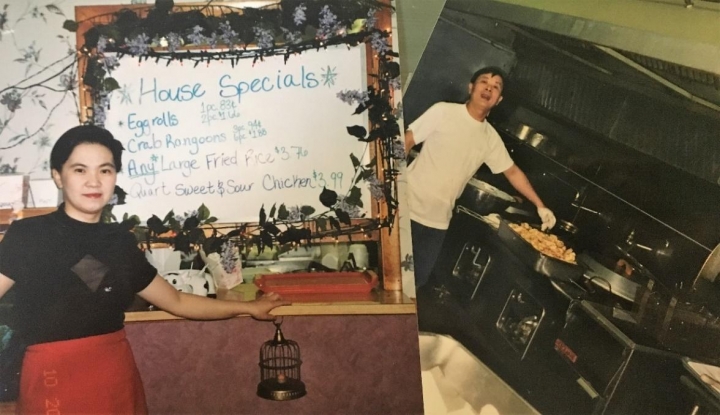 *House Specials*
Eggrolls 1pc .83¢
2pc $1.66
Crab Rangoons
Any* Large Fried Rice $3.76
Quart Sweet & Sour Chicken $3.99
10 20